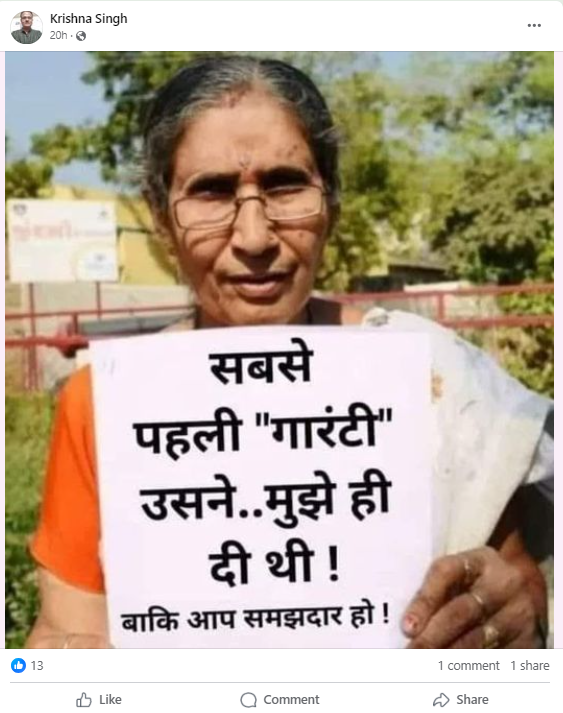 Krishna Singh
20h
सबसे
पहली "गारंटी"
उसने..मुझे ही
दी थी !
बाकि आप समझदार हो !
13
1 comment 1 share
Like Comment Share